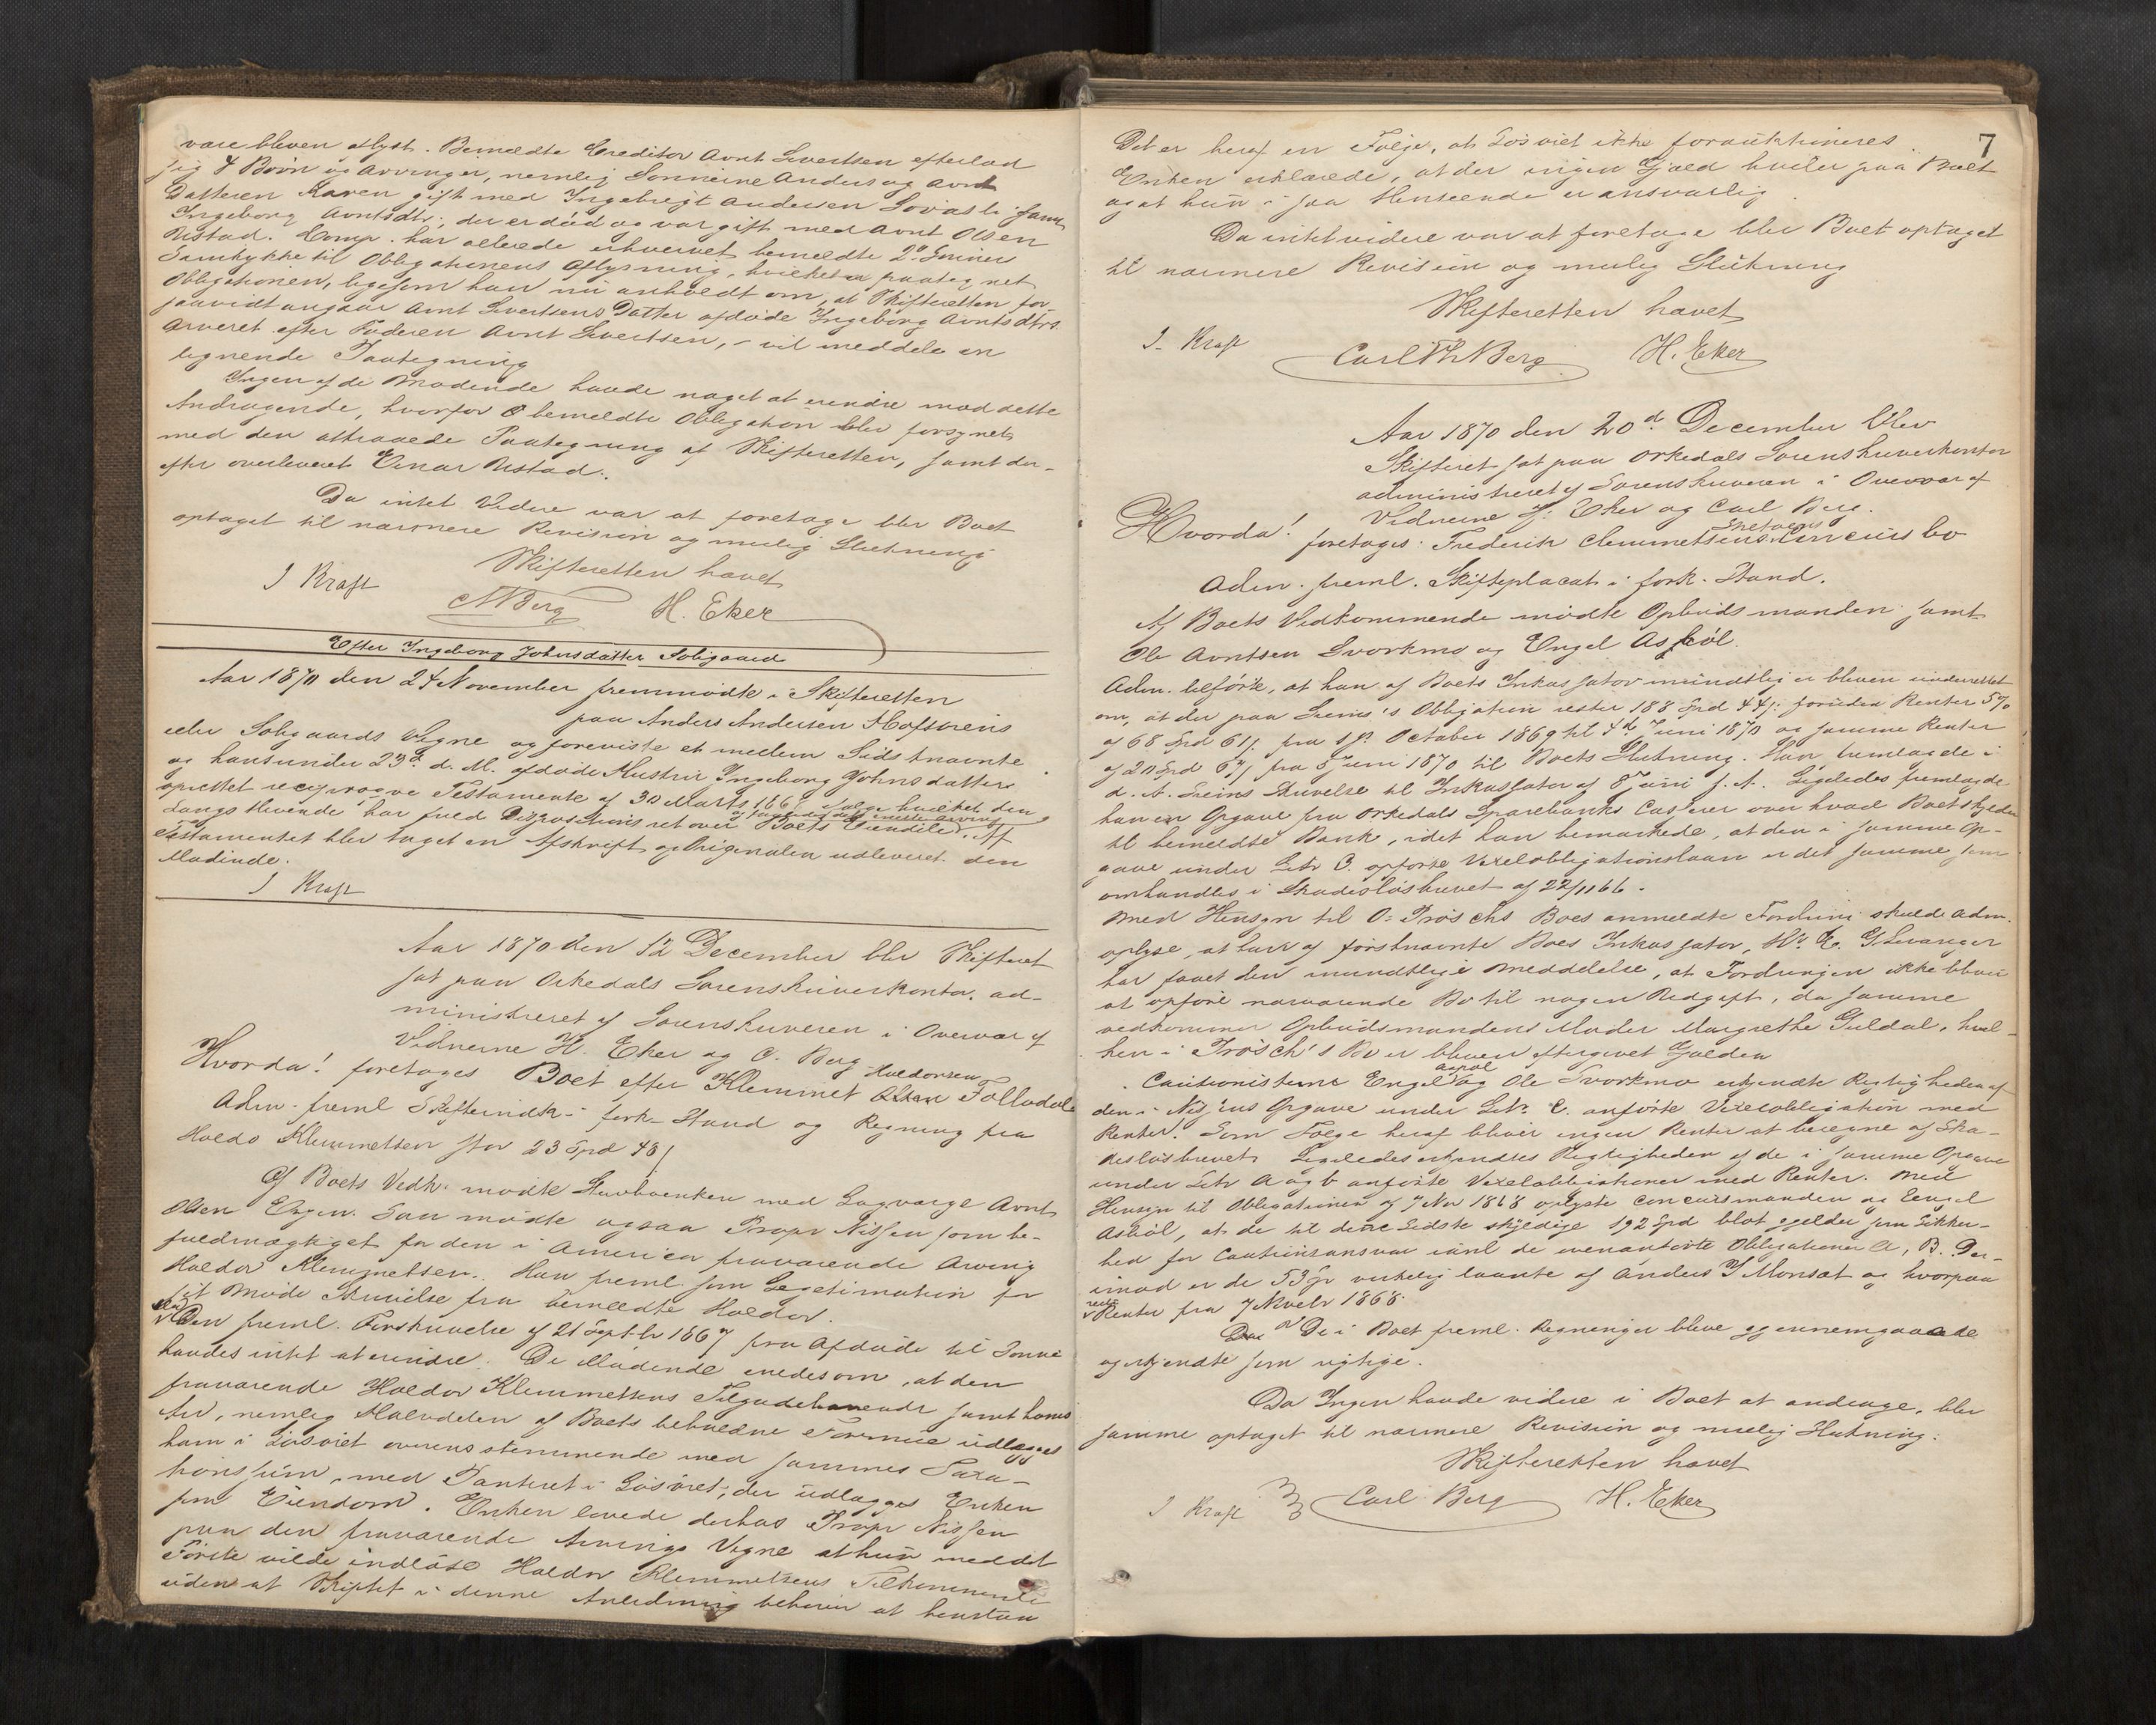 være bleven aflyst. Bemeldte Creditor Arnt Sivertsen efterlod
sig 4 Børn og Arvinger, nemlig Sønnerne Anders og Arnt
Datteren Karen gift med Ingebrigt Andersen Sovasli samt
Ingeborg Arntsdtr, der er død og var gift med Arnt Olsen
Ustad. Comp. har allerede erhvervet bemeldte 2de Sønners
Samtykke til Obligationens Aflysning, hvilket er paategnet
Obligationen, ligesom han nu anholdt om, at Skifteretten for
saavidt angaar Arnt Sivertsens Datter afdøde Ingeborg Arntsdtrs
Arveret efter Faderen Arnt Sivertsen, vil meddele en
lignende Paategning
Ingen af de Mødende havde noget at erindre mod dette
Andragende, hvorfor bemeldte Obligation blev forsynet
med den attraaede Paategning af Skifteretten, samt der-
efter overleveret Einar Ustad.
Da intet Videre var at foretage blev Boet
optaget til nærmere Revision og mulig Slutning
Skifteretten hævet
J Kraft CThBerg H. Eker
Efter Ingeborg Johnsdatter Soligaard
Aar 1870 den 24 November fremmødte i Skifteretten
paa Anders Andersen Hofsørens
eller Soligaards Vegne og foreviste et mellem Sidstnævnte
og hans under 23d d. M. afdøde Hustru Ingeborg Johnsdatter
oprettet reciproque Testamente af 30 Marts 1868 ifølge hvilket den
Længstlevende har fuld Dispositionsret over Boets Eiendele. Af
Testamentet blev taget en Afskrift og Originalen udleveret den
Mødende.
J Kraft
Aar 1870 den 12 December blev Skifteret
sat paa Orkedals Sorenskriverkontor, ad-
ministreret af Sorenskriveren i Overvær af
Vidnerne H. Eker og C. Berg
Hvorda! foretoges Boet efter Klemmet Haldorsen Follodal
Adm. freml Skifteindk. i fork. Stand og Regning fra
Haldo Klemmetsen stor 23 Spd 48 s
Af Boets Vedk. mødte Stervboenken med Laugværge Arnt
Olsen Engen. Saa mødte ogsaa Propr Nissen som be-
fuldmægtiget for den i America fraværende Arving
Haldor Klemmetsen. Han freml. som Legetimation for
sit Møde Skrivelse fra bemeldte Haldor.
Den freml. Forskrivelse af 21 Septbr 1867 fra Afdøde til Sønnen
havdes intet at erindre. De Mødende enedes om, at den
fraværende Haldor Klemmetsens Tilgodehavende samt hans
Arv, nemlig Halvdelen af Boets beholdne Formue udlægges
ham i Løsøret overensstemmende med sammes Taxa-
tionssum, med Panteret i Løsøret, der udlægges Enken
som Eiendom. Enken lovede derhos Propr Nissen
paa den fraværende Arvings Vegne at hun med det
Første vilde indløse Haldor Klemmetsens Tilkommende
uden at Skiftet i denne Anledning behøver at henstaa
7
Det er heraf en Følge, at Løsøret ikke forauktioneres
Enken erklærede, at der ingen Gjæld hviler paa Boet
og at hun i saa Henseende er ansvarlig
Da intet videre var at foretage blev Boet optaget
til nærmere Revision og mulig Slutning
Skifteretten hævet
J. Kraft Carl ThBerg H. Eker
Aar 1870 den 20d December blev
Skifteret sat paa Orkedals Sorenskriverkontor
administreret af Sorenskriveren i Overvær af
Vidnerne H. Eker og Carl Berg.
Hvorda! foretoges: Frederik Clemmetsens Concursbo
Adm. freml. Skifteplacat i fork. Stand.
Af Boets Vedkommende mødte Opbudsmanden samt
Ole Arntsen Svorkmo og Engel Asbøl.
Adm. tilførte, at han af Boets Inkassator mundtlig er bleven underrettet
om, at der paa Grein's Obligation rester 188 Spd 44 s. foruden Renter 5%
af 68 Spd 61 s. fra 1st October 1869 til 4d Juni 1870 og samme Renter
af 20 Spd 67 s fra 5 Juni 1870 til Boets Slutning. Han fremlagde i
d. A. Greins Skrivelse til Inkassator af 8 Juni f. A. Ligeledes fremlagde
han en Opgave fra Orkedals Sparebanks Casserer over hvad Boet skylder
til bemeldte Bank, idet han bemærkede, at den i samme Op-
gave under Litr C. opførte Vexelobligationslaan er det samme som
omhandles i Skadesløsbrevet af 22/11 66.
Med Hensyn til O. Prøschs Boes anmeldte Fordring skulde Adm.
oplyse, at han af førstnævnte Boes Inkassator, Hr. G. Levanger
har faaet den mundtlige Meddelelse, at Fordringen ikke bliver
at opføre nærværende Bo til nogen Udgift, da samme
vedkommer Opbudsmandens Moder Margrethe Guldal, hvil-
ken i Prøsch's Bo er bleven eftergivet Gjælden
Cautionisterne Engel Asbøl og Ole Svorkmo erkjendte Rigtigheden af
den i Opgave under Litr. C. anførte Vexelobligation med
Renter. Som Følge heraf bliver ingen Renter at beregne af Ska-
desløsbrevet. Ligeledes erkjendtes Rigtigheden af de i samme Opgave
under Litr A og b anførte Vexelobligationer med Renter. Med
Hensyn til Obligationen af 7 Nov 1868 oplyste Concursmanden og Engel
Asbøl, at de til denne Sidste skyldige 192 Spd blot gjelder som Sikker-
hed for Cautionsansvar iänl de ovenanførte Obligationer A, B. Der-
imod er de 53 Sp virkelig laante af Anders J Monset og hvorpaa
rester Renter fra 7 Novbr 1868.
De i Boet freml. Regninger bleve gjennemgaaede
og erkjendte som rigtige.
Da Ingen havde videre i Boet at andrage, blev
samme optaget til nærmere Revision og mulig Slutning.
Skifteretten hævet
J Kraft Carl Berg H. Eker